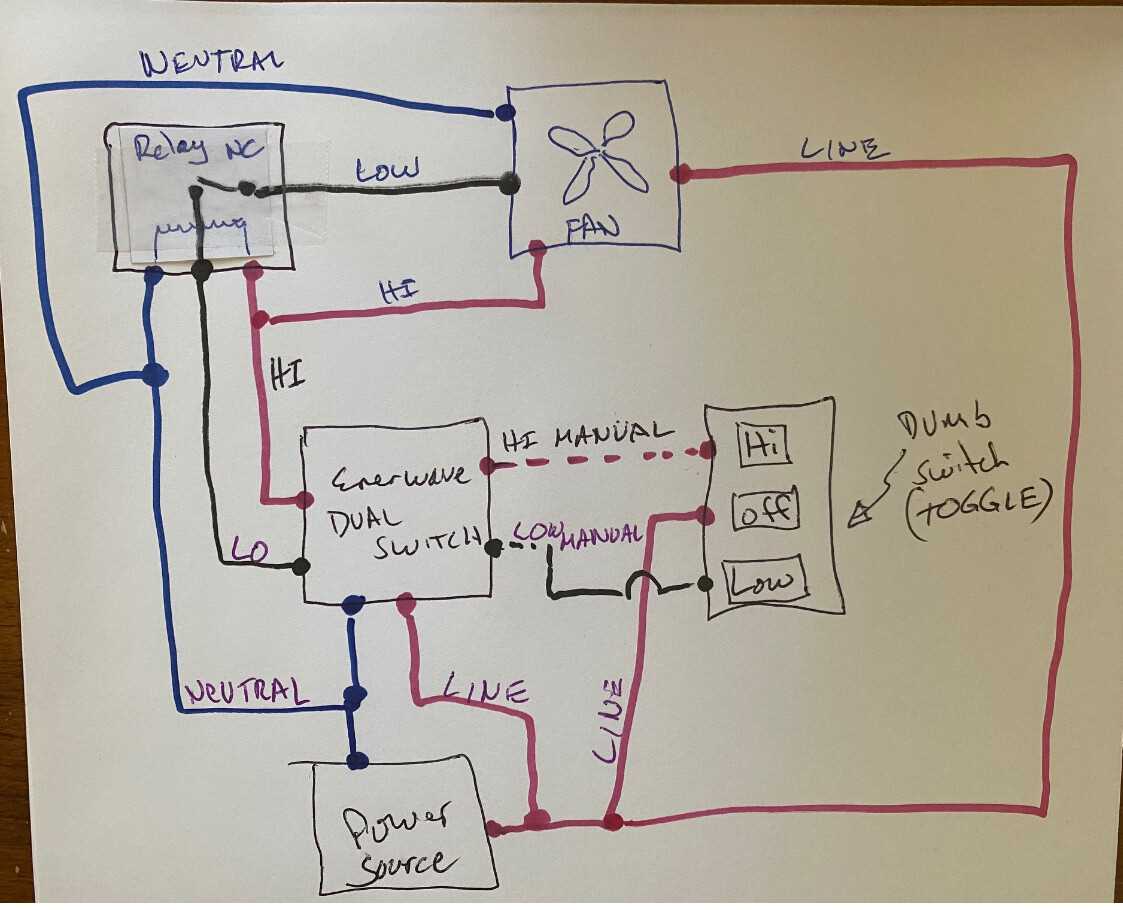 NEUTRAL
Relay NC
LOW
LINE
FAN
HI
HI
Enerwave
DUAL
SWITCH
HI MANUAL
LOW MANUAL
Hi
off
Low
DUMB
SWITCH
(TOGGLE)
LO
NEUTRAL
LINE
LINE
Power
Source